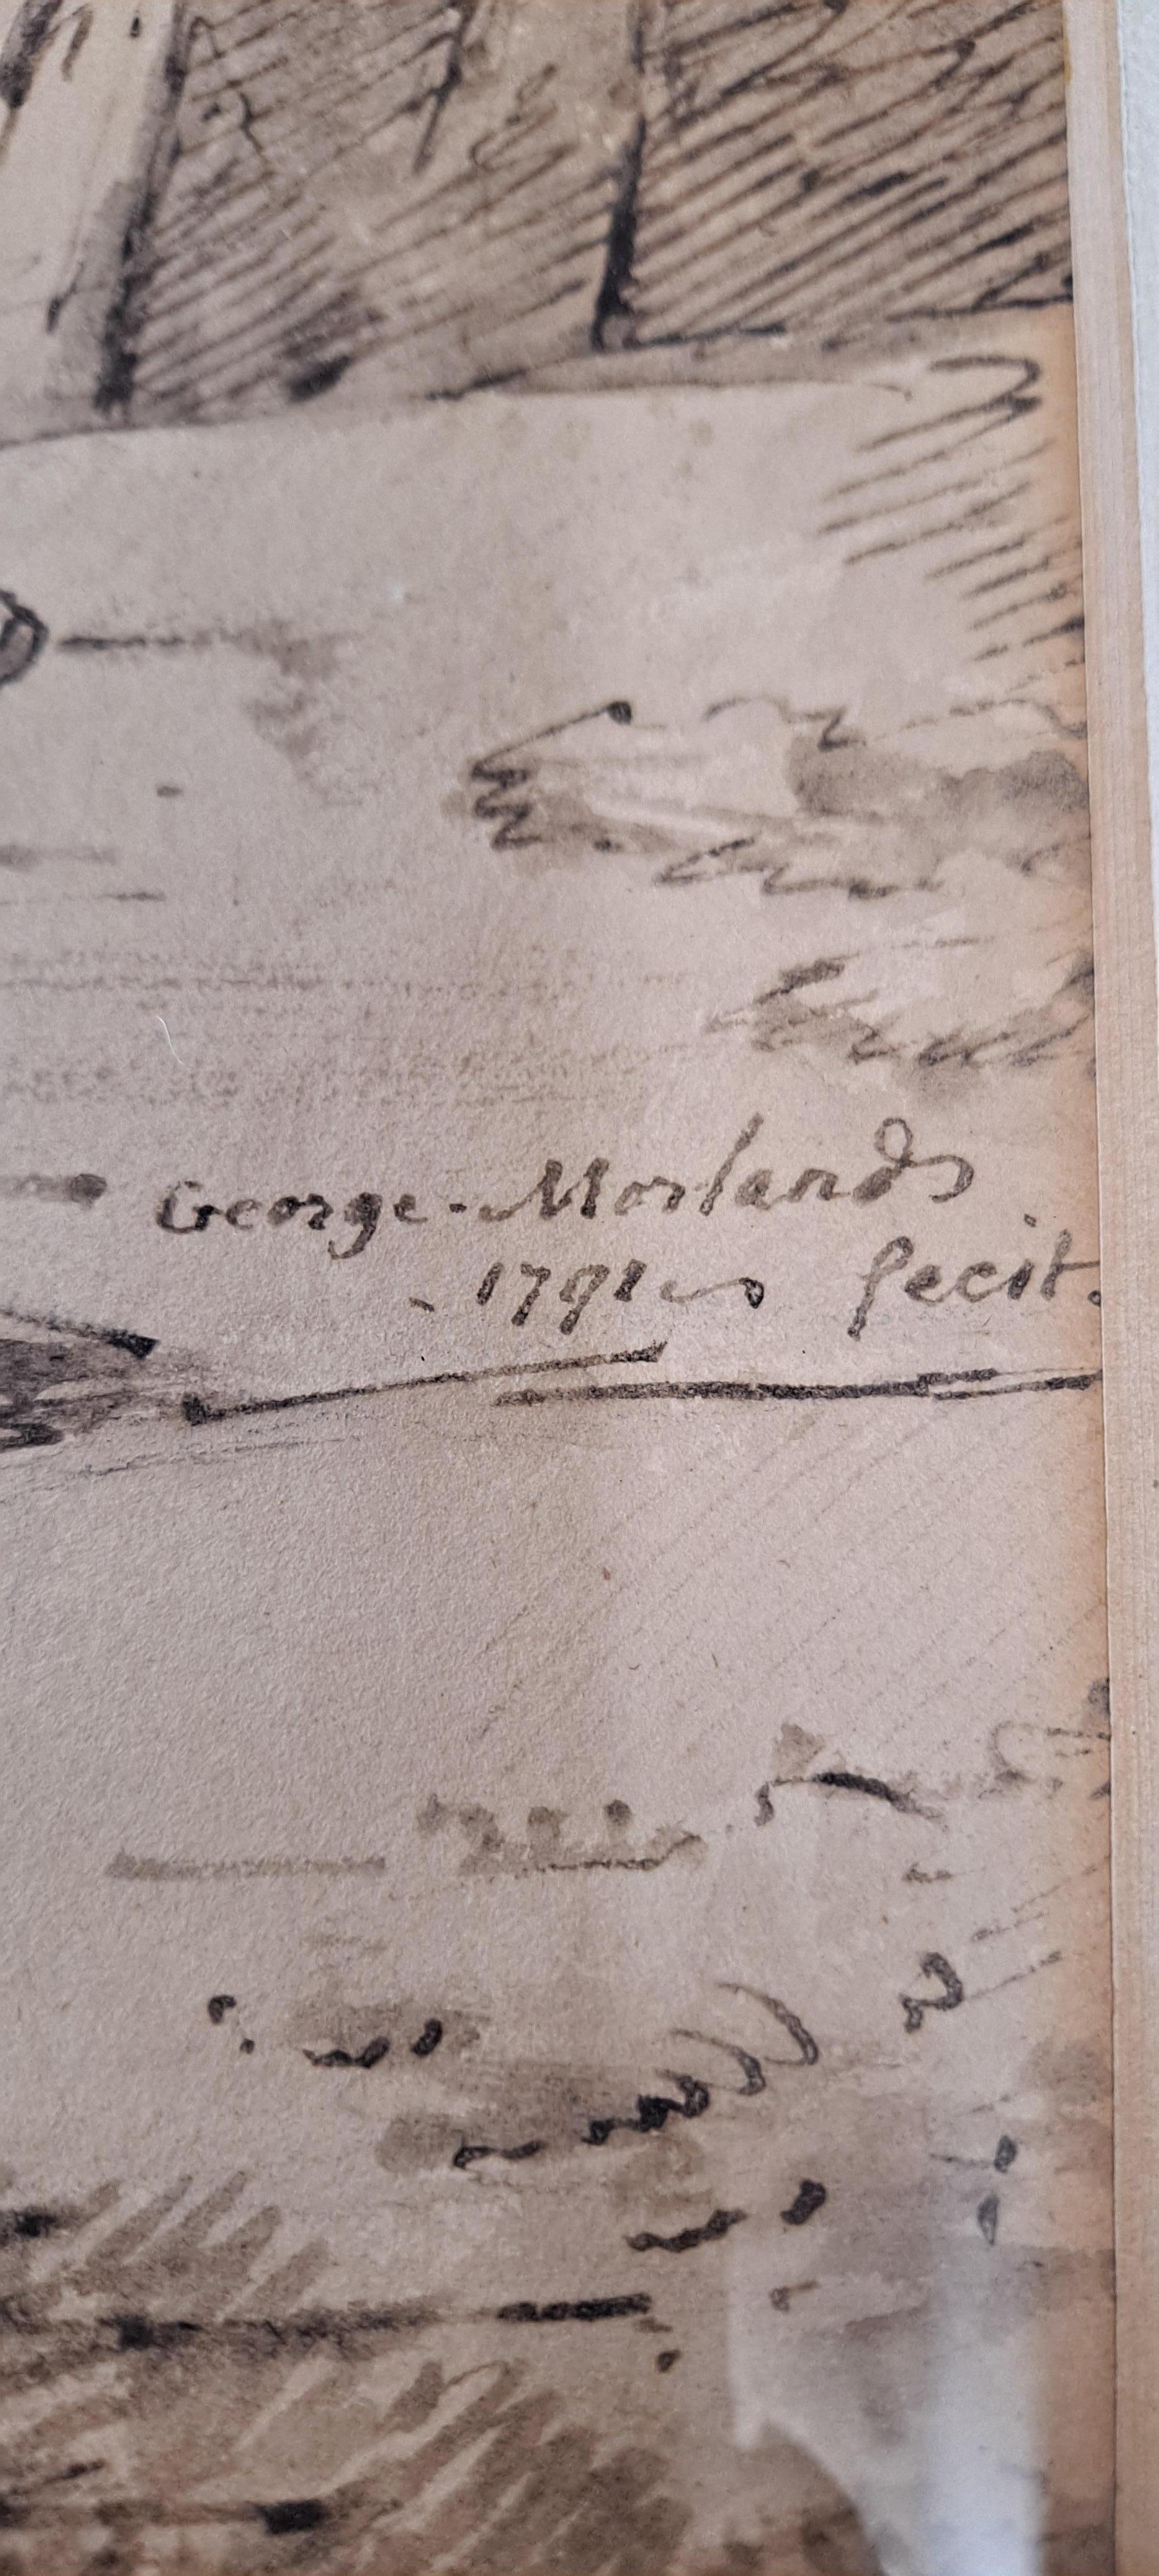 George - Morland
- 1791 fecit.